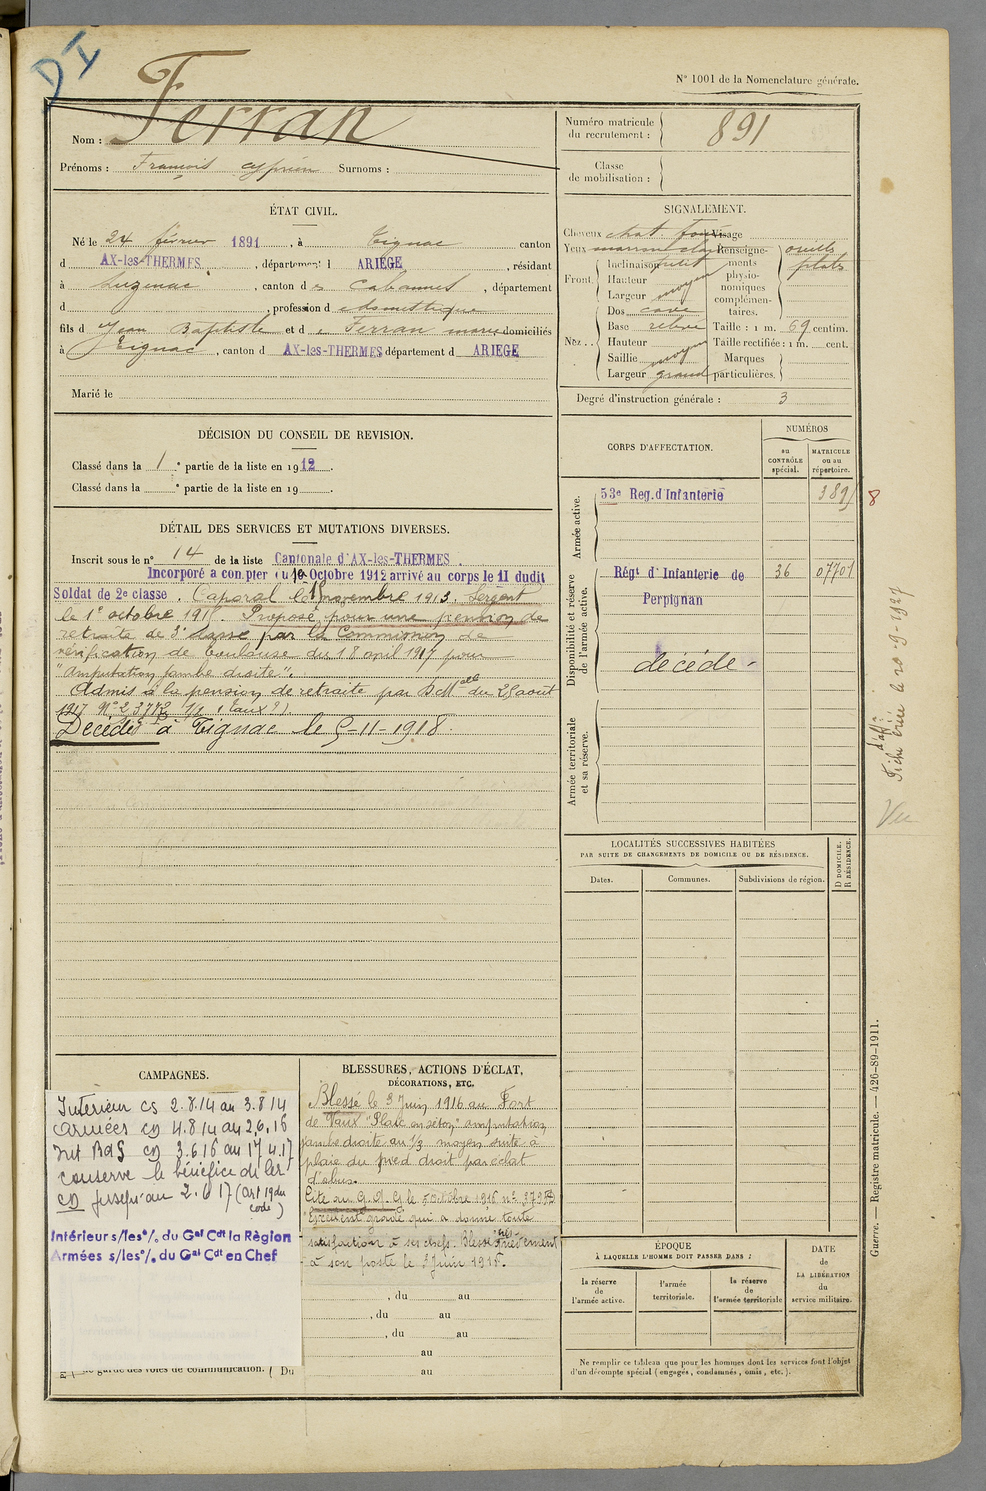 D I
N° 1001 de la Nomenclature générale.
Nom : Ferran
Prénoms : François Cyprien Surnoms :
Numéro matricule du recrutement : 891
Classe de mobilisation :
ÉTAT CIVIL.
Né le 24 février 1891, à Tignac canton
d AX-les-THERMES, département d ARIÈGE, résidant
à Luzenac, canton des Cabannes, département
d , profession de domestique
fils d Jean Baptiste et de Ferran marie domiciliés
à Tignac, canton d AX-les-THERMES département d ARIEGE
Marié le
SIGNALEMENT.
Cheveux chat. foncé Visage
Yeux marron clair
Front. Inclinaison
Hauteur
Largeur moyen
Nez.. Dos cave
Base relevé
Hauteur
Saillie moyen
Largeur grand
Renseignements physionomiques complémentaires. oreilles plates
Taille : 1 m. 69 centim.
Taille rectifiée : 1 m. cent.
Marques particulières.
Degré d'instruction générale : 3
DÉCISION DU CONSEIL DE REVISION.
Classé dans la 1e partie de la liste en 1912.
Classé dans la e partie de la liste en 19 .
DÉTAIL DES SERVICES ET MUTATIONS DIVERSES.
Inscrit sous le n° 14 de la liste Cantonale d'AX-les-THERMES.
Incorporé à compter du 10 Octobre 1912 arrivé au corps le 11 dudit
Soldat de 2e classe. Caporal le 8 novembre 1913. Sergent
le 1er octobre 1915. Proposé pour une pension de
retraite de 3e classe par la Commission de
vérification de Toulouse du 18 avril 1917 pour
"Amputation jambe droite".
Admis à la pension de retraite par D. Melle du 25 août
1917 N° 2 3772
Décédé à Tignac le 5-11-1918.
CORPS D'AFFECTATION.
NUMÉROS
au CONTRÔLE spécial.
MATRICULE ou au répertoire.
Armée active.
53e Reg. d'Infanterie 8
Disponibilité et réserve de l'armée active.
Régt d'Infanterie de 36 07701
Perpignan
décédé.
Armée territoriale et sa réserve.
Fiche créée le 20-9-1927
Vu
LOCALITÉS SUCCESSIVES HABITÉES
PAR SUITE DE CHANGEMENTS DE DOMICILE OU DE RÉSIDENCE.
Dates. Communes. Subdivisions de région. D DOMICILE. R RÉSIDENCE.
CAMPAGNES.
Intérieur CS 2.8.14 au 3.8.14
Armées CD 4.8.14 au 2.6.16
Int BdG CD 3.6.16 au 17.4.17
conserve le bénéfice de la
CD jusqu'au 2.6.17 (art 19 du
code)
Intérieurs s/les°/. du Gal Cdt la Région
Armées s/les°/. du Gal Cdt en Chef
garde des voies de communication. ( Du
BLESSURES, ACTIONS D'ÉCLAT,
DÉCORATIONS, ETC.
Blessé le 3 Juin 1916 au Fort
de Vaux "Plaie en séton" amputation
jambe droite au 1/3 moyen suite à
plaie du pied droit par éclat
d'obus.
Cité au G.Q.G le octobre 1916 n°
"Excellent gradé qui a donné toute
satisfaction à ses chefs. Blessé très grièvement
à son poste le 3 juin 1916.
, du au
, du au
, du au
au
au
ÉPOQUE
À LAQUELLE L'HOMME DOIT PASSER DANS :
la réserve de l'armée active.
l'armée territoriale.
la réserve de l'armée territoriale
DATE de LA LIBÉRATION du service militaire.
Ne remplir ce tableau que pour les hommes dont les services font l'objet
d'un décompte spécial (engagés, condamnés, omis, etc.).
Guerre. — Registre matricule. — 426-89-1911.